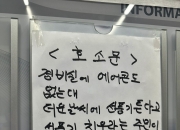 INFORMA
< 호소문 >
경비실에 에어콘도
없는데
더운날씨에 선풍기를 다고
선풍기 치우라는 주민이